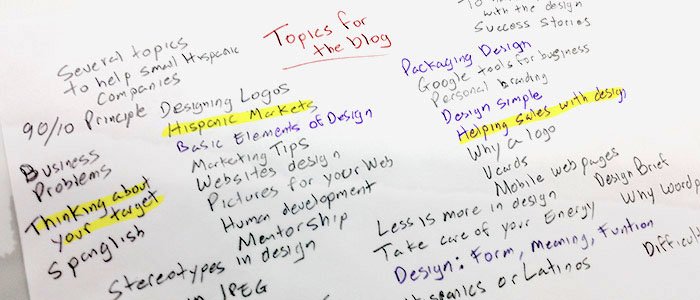 Topics for
the blog
Several topics
to help small Hispanic
companies
90/10 Principle
Business
Problems
Thinking about
your target
Spanglish
Designing Logos
Hispanic Markets
Basic Elements of Design
Marketing Tips
Websites design
Pictures for your Web
Human development
Mentorship
in design
Stereotypes
in JPEG
with the design
Success Stories
Packaging Design
Google tools for business
Personal branding
Design simple
Helping sales with design
Why a logo
Vcards
Mobile web pages
Design Brief
Less is more in design
Why Wordp
Take care of your Energy
Design: Form, Meaning, Funtion
Hispanics or Latinos
Difficult